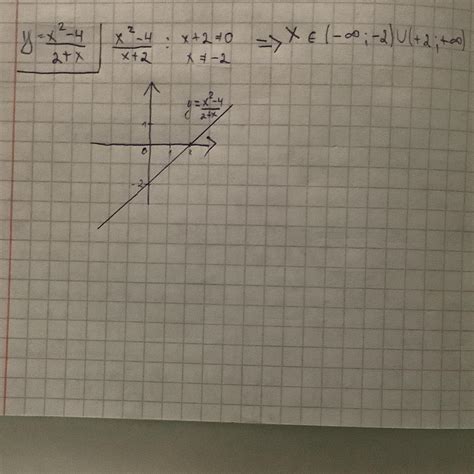 y = x²-4 / 2+x | x²-4 / x+2 : x+2≠0 ⇒ x ∈ (-∞; -2) ∪ (+2; +∞)
x ≠ -2
y = x²-4 / 2+x
1
0 1 2
-2